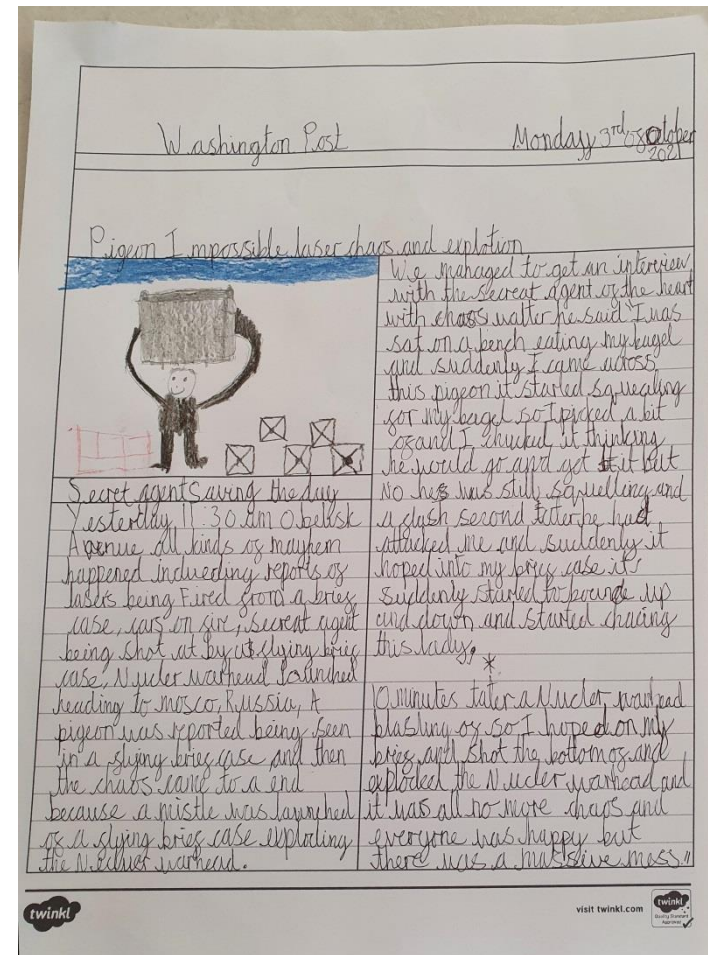 Washington Post
Monday 3rd of October
2021
Pigeon Impossible laser chaos and explotion
Secret agent Saving the day
Yesterday 11:30 am Obelisk
Avenue all kinds of mayhem
happened indueding reports of
lasers being Fired from a brief
case, cars on fire, secreat agent
being shot at by a flying brief
case, Nucler warhead launched
heading to mosco, Russia, A
pigeon was reported being seen
in a flying brief case and then
the chaos came to a end
because a mistle was launched
of a flying brief case exploding
the Necluer warhead.
We managed to get an interveiw
with the secreat agent of the heart
with chaos walter he said "I was
sat on a bench eating my bagel
and suddenly I came across
this pigeon it started squealing
for my bagel so I picked a bit
of and I chucked it thinking
he would go and get it but
No he was still squelling and
a flash second latter he had
attacked me and suddenly it
hoped into my brief case it
suddenly started to bounce up
and down and started chacing
this lady.
*
10 minutes later a Nucler warhead
blasting of so I hoped on my
brief and shot the bottom of and
exploded the Nucler warhead and
it was all no more chaos and
everyone was happy but
there was a massive mess."
twinkl
visit twinkl.com
twinkl
Quality Standard
Approved